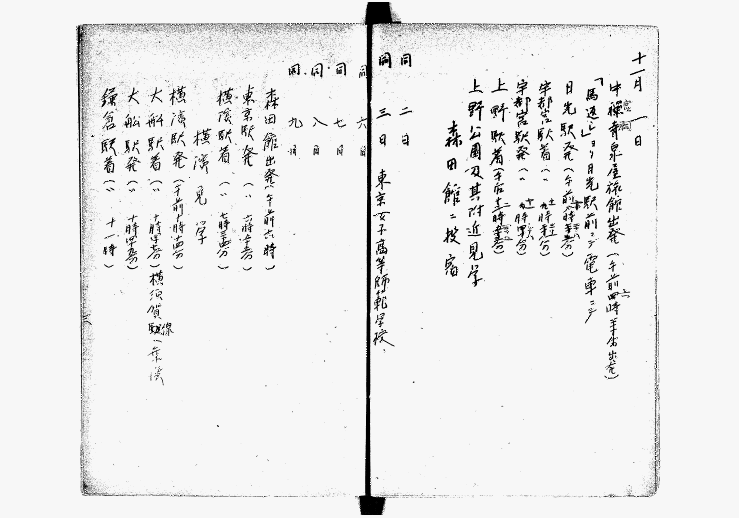 十一月一日
中禅寺泉屋旅館出発(午前四時半出発)
「馬返し」ヨリ日光駅前マデ電車ニテ
日光駅発(午前八時
宇都宮駅着(〃 九時 分)
宇都宮駅発(〃 九時 分)
上野駅着(午后 時 分)
上野公園及其附近見学
森田館ニ投宿
同 二日
同 三日 東京女子高等師範学校、
同 六日
同 七日
同 八日
同 九日
森田館出発(午前六時)
東京駅発(〃 六時 分)
横濱駅着(〃 七時 分)
横濱見学
横濱駅発(午前十時 分)
大船駅着(〃 十時 分)横須賀線 乗換
大船駅発(〃 十時 分)
鎌倉駅着(〃 十一時)